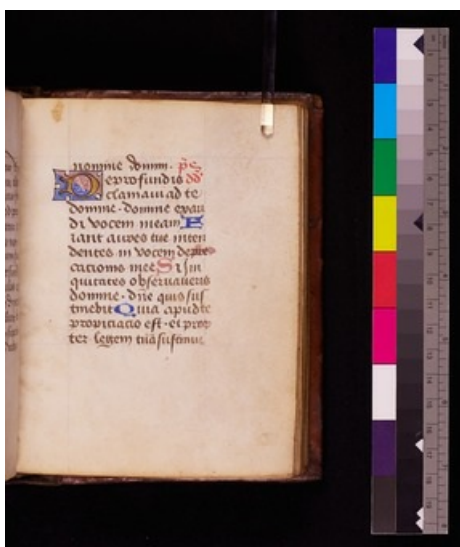 nomine domini. ps
De profundis dd
clamaui ad te
domine. domine exau
di vocem meam E
iant aures tue inten
dentes in vocem depre
cacionis mee Si in
iquitates obseruaueris
domine. dne quis sus
tinebit Quia apud te
propiciacio est. et prop
ter legem tuā sustinui